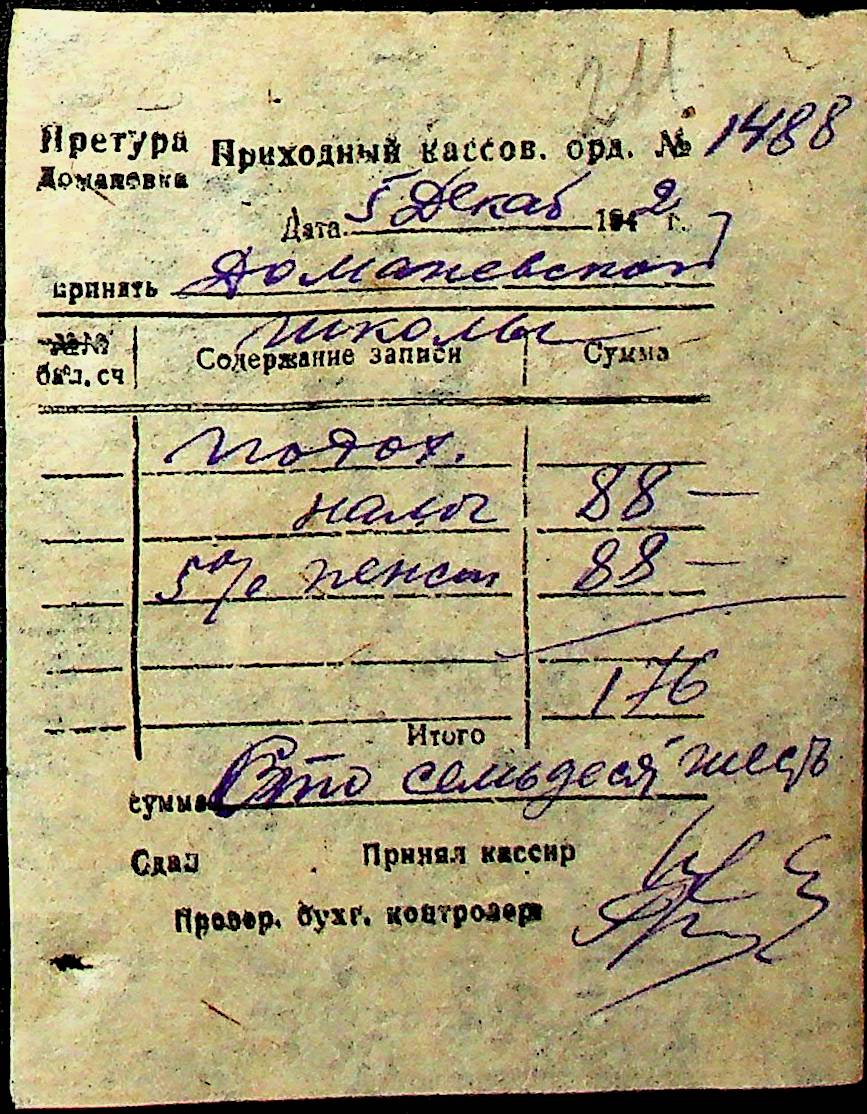 211
Претура Приходный кассов. орд. № 1488
Доманевка
Дата 5 Декаб 1942 г.
принять Доманевской
школы
№№ бал. сч Содержание записи Сумма
подох.
налог 88 —
5% пенсии 88 —
176
Итого
сумма Сто семьдесят шесть
Сдал Принял кассир
Провер. бухг. контролер